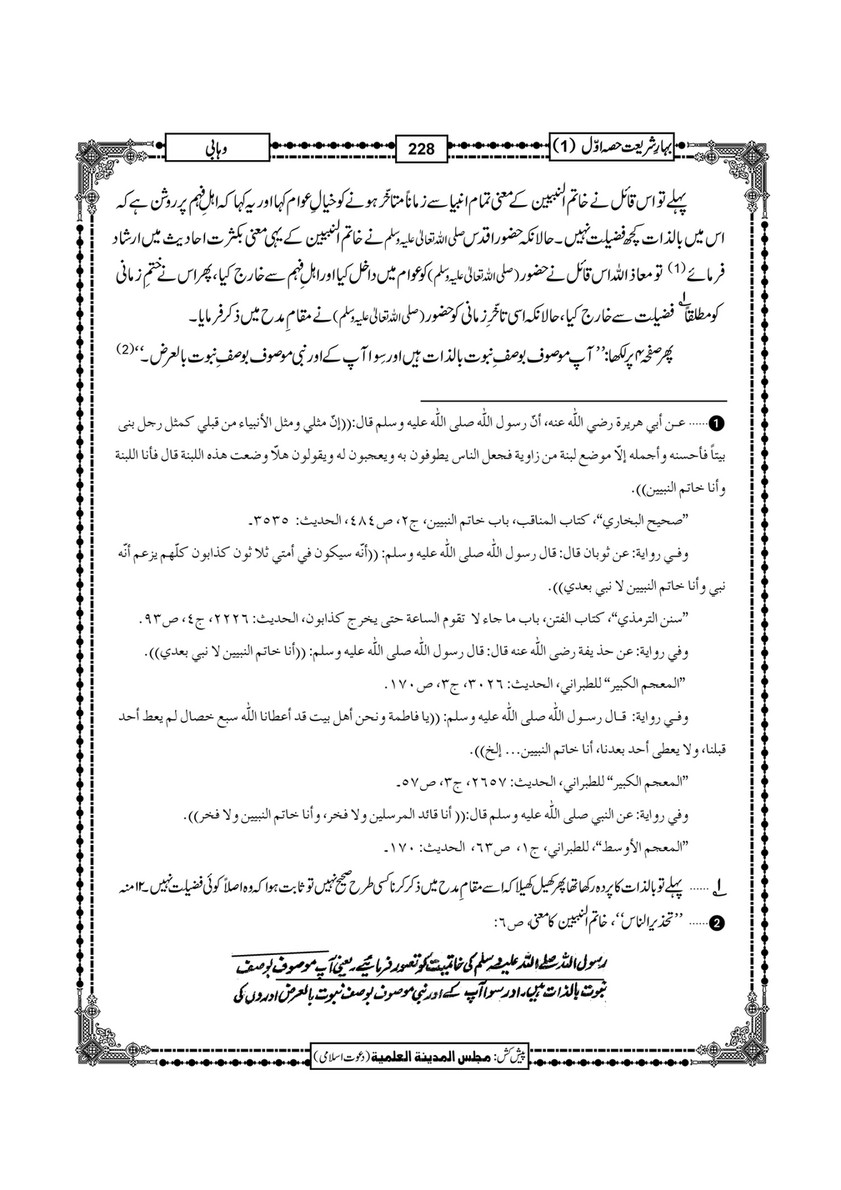 بہارِ شریعت حصہ اوّل (1)
228
وہابی
پہلے تو اس قائل نے خاتم النبیین کے معنی تمام انبیا سے زماناً متاخّر ہونے کو خیالِ عوام کہا اور یہ کہا کہ اہلِ فہم پر روشن ہے کہ
اس میں بالذات کچھ فضیلت نہیں۔ حالانکہ حضور اقدس صلی اللہ تعالیٰ علیہ وسلم نے خاتم النبیین کے یہی معنی بکثرت احادیث میں ارشاد
فرمائے (1) تو معاذ اللہ اس قائل نے حضور (صلی اللہ تعالیٰ علیہ وسلم) کو عوام میں داخل کیا اور اہلِ فہم سے خارج کیا، پھر اس نے ختمِ زمانی
کو مطلقاً ۱ فضیلت سے خارج کیا، حالانکہ اسی تاخّرِ زمانی کو حضور (صلی اللہ تعالیٰ علیہ وسلم) نے مقامِ مدح میں ذکر فرمایا۔
پھر صفحہ ۴ پر لکھا: ’’آپ موصوف بوصفِ نبوت بالذات ہیں اور سِوا آپ کے اور نبی موصوف بوصفِ نبوت بالعرض۔‘‘ (2)
1...... عـن أبي هريرة رضي الله عنه، أنّ رسول الله صلى الله عليه وسلم قال:((إنّ مثلي ومثل الأنبياء من قبلي كمثل رجل بنى
بيتاً فأحسنه وأجمله إلّا موضع لبنة من زاوية فجعل الناس يطوفون به ويعجبون له ويقولون هلّا وضعت هذه اللبنة قال فأنا اللبنة
وأنا خاتم النبيين)).
”صحيح البخاري“، كتاب المناقب، باب خاتم النبيين، ج٢، ص٤٨٤، الحديث: ٣٥٣٥۔
وفـي رواية: عن ثوبان قال: قال رسول الله صلى الله عليه وسلم: ((أنّه سيكون في أمتي ثلا ثون كذابون كلّهم يزعم أنّه
نبي وأنا خاتم النبيين لا نبي بعدي)).
”سنن الترمذي“، كتاب الفتن، باب ما جاء لا تقوم الساعة حتى يخرج كذابون، الحديث: ٢٢٢٦، ج٤، ص٩٣.
وفي رواية: عن حذيفة رضى الله عنه قال: قال رسول الله صلى الله عليه وسلم: ((أنا خاتم النبيين لا نبي بعدي)).
”المعجم الكبير“ للطبراني، الحديث: ٣٠٢٦، ج٣، ص١٧٠.
وفـي رواية: قـال رسـول الله صلى الله عليه وسلم: ((يا فاطمة ونحن أهل بيت قد أعطانا الله سبع خصال لم يعط أحد
قبلنا، ولا يعطى أحد بعدنا، أنا خاتم النبيين... إلخ)).
”المعجم الكبير“ للطبراني، الحديث: ٢٦٥٧، ج٣، ص٥٧۔
وفي رواية: عن النبي صلى الله عليه وسلم قال:(( أنا قائد المرسلين ولا فخر، وأنا خاتم النبيين ولا فخر)).
”المعجم الأوسط“، للطبراني، ج١، ص٦٣، الحديث: ١٧٠۔
۱ ...... پہلے تو بالذات کا پردہ رکھا تھا پھر کھیل کھیلا کہ اسے مقامِ مدح میں ذکر کرنا کسی طرح صحیح نہیں تو ثابت ہوا کہ وہ اصلاً کوئی فضیلت نہیں۔ ۱۲ منہ
2...... ’’تحذیر الناس‘‘، خاتم النبیین کا معنی، ص ٦:
رسول اللہ صلے اللہ علیہ وسلم کی خاتمیت کو تصور فرمائیے۔ یعنی آپ موصوف بوصف
نبوت بالذات ہیں۔ اور سوا آپ کے اور نبی موصوف بوصف نبوت بالعرض اوروں کی
پیش کش: مجلس المدینة العلمیة (دعوت اسلامی)